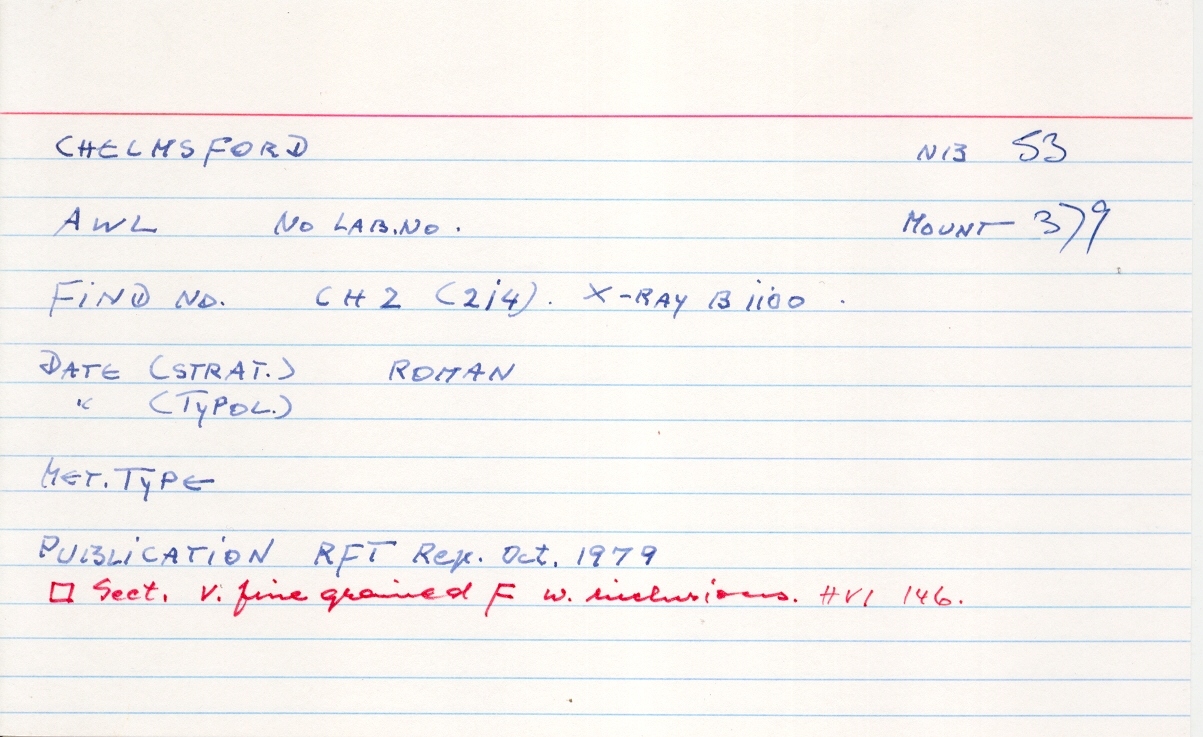 CHELMSFORD NB 53
AWL NO LAB.NO. MOUNT 379
FIND NO. CH 2 (214). X-RAY B 1100.
DATE (STRAT.) ROMAN
" (TYPOL.)
MET. TYPE
PUBLICATION RFT Rep. Oct. 1979
□ Sect. v. fine grained F w. inclusions. HV1 146.